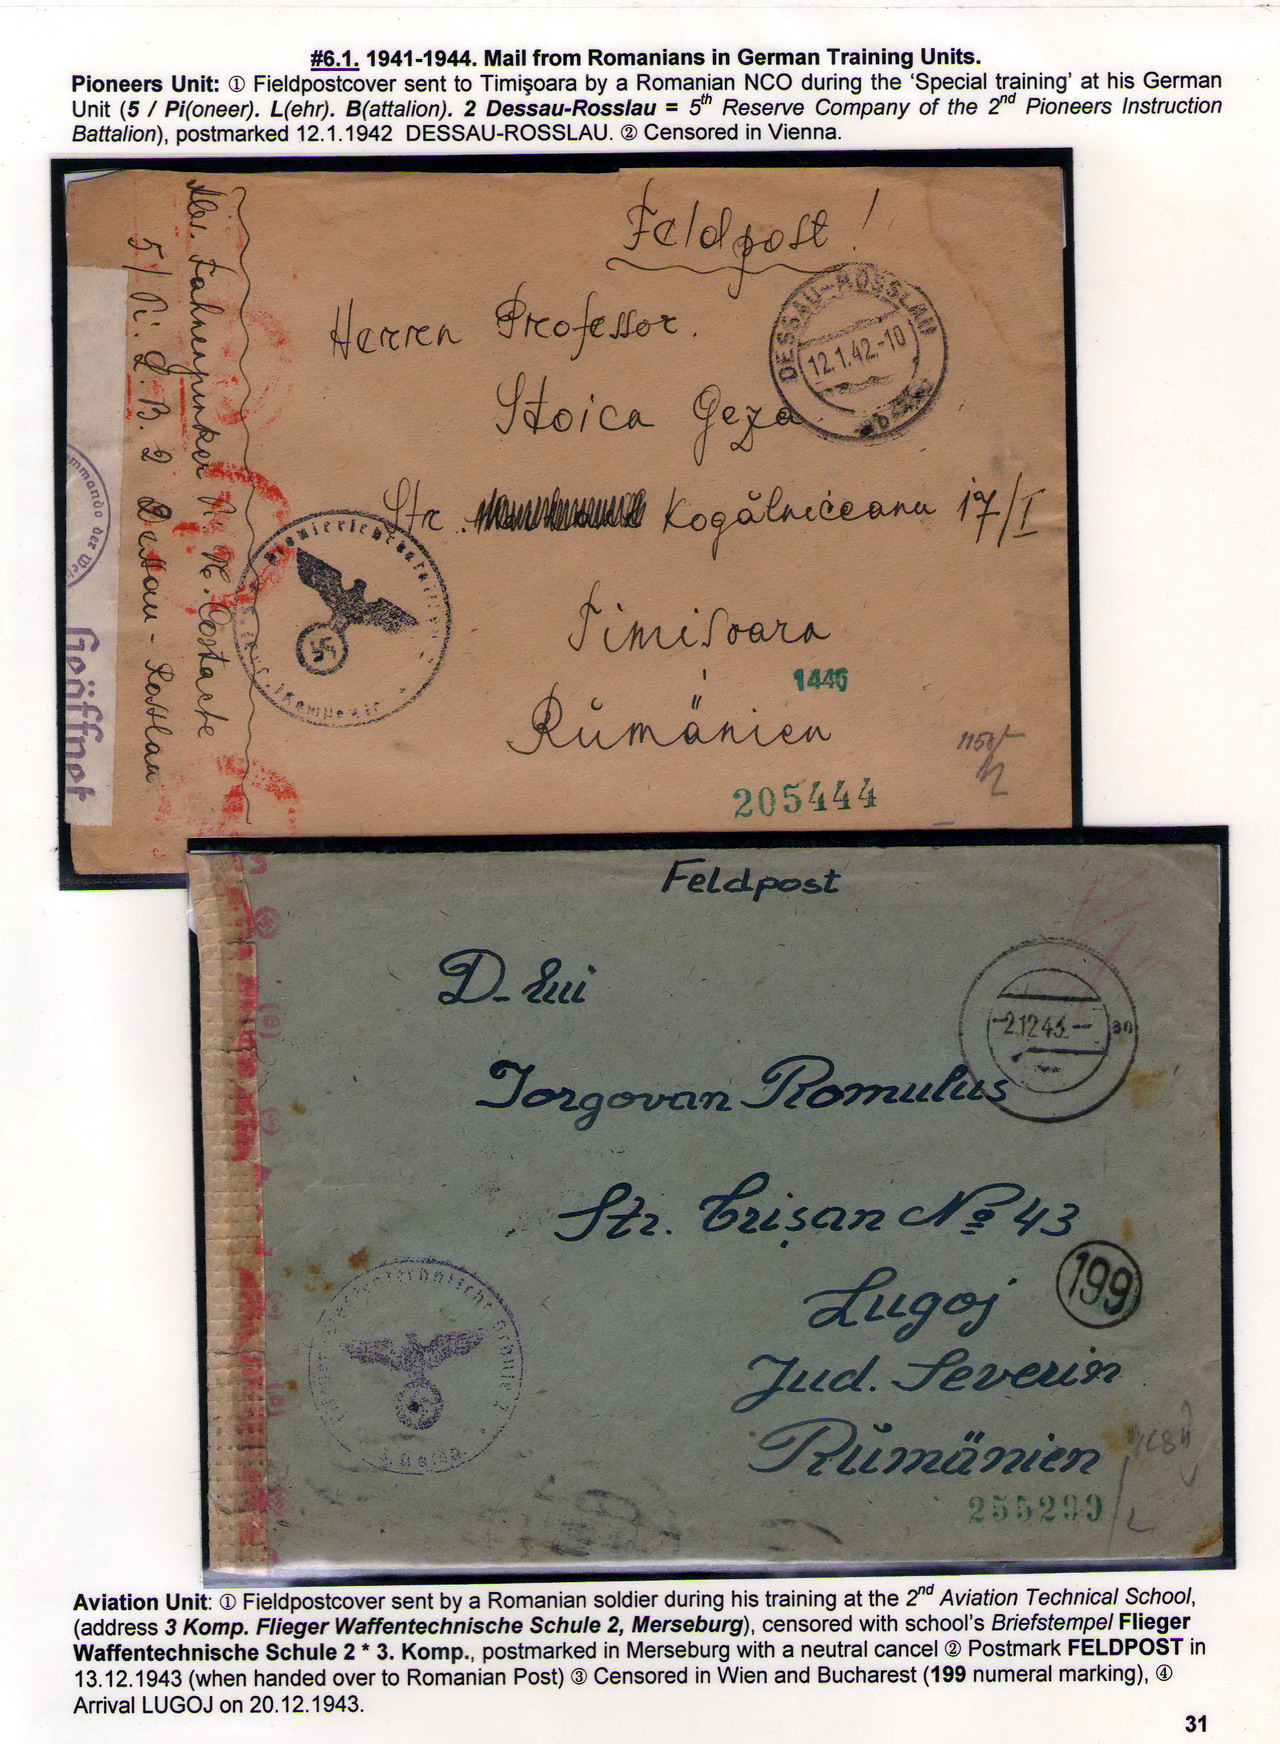 #6.1. 1941-1944. Mail from Romanians in German Training Units.
Pioneers Unit: ① Fieldpostcover sent to Timişoara by a Romanian NCO during the ‘Special training’ at his German
Unit (5 / Pi(oneer). L(ehr). B(attalion). 2 Dessau-Rosslau = 5th Reserve Company of the 2nd Pioneers Instruction
Battalion), postmarked 12.1.1942 DESSAU-ROSSLAU. ② Censored in Vienna.
Feldpost!
Herren Professor.
Stoica Geza
Str. Kogălniceanu 17/I
Timisoara
Rumänien
DESSAU-ROSSLAU
12.1.42.-10
b
1446
205444
Abs. Fahnenjunker
M. Costache
5/Pi. L. B. 2 Dessau-Rosslau
Kommando der
Geöffnet
Feldpost
D-lui
Iorgovan Romulus
Str. Crişan No 43
Lugoj
Jud. Severin
Rumänien
-2.12.43.--
30
199
255299
Waffentechnische Schule 2
3. Komp.
Aviation Unit: ① Fieldpostcover sent by a Romanian soldier during his training at the 2nd Aviation Technical School,
(address 3 Komp. Flieger Waffentechnische Schule 2, Merseburg), censored with school’s Briefstempel Flieger
Waffentechnische Schule 2 * 3. Komp., postmarked in Merseburg with a neutral cancel ② Postmark FELDPOST in
13.12.1943 (when handed over to Romanian Post) ③ Censored in Wien and Bucharest (199 numeral marking), ④
Arrival LUGOJ on 20.12.1943.
31